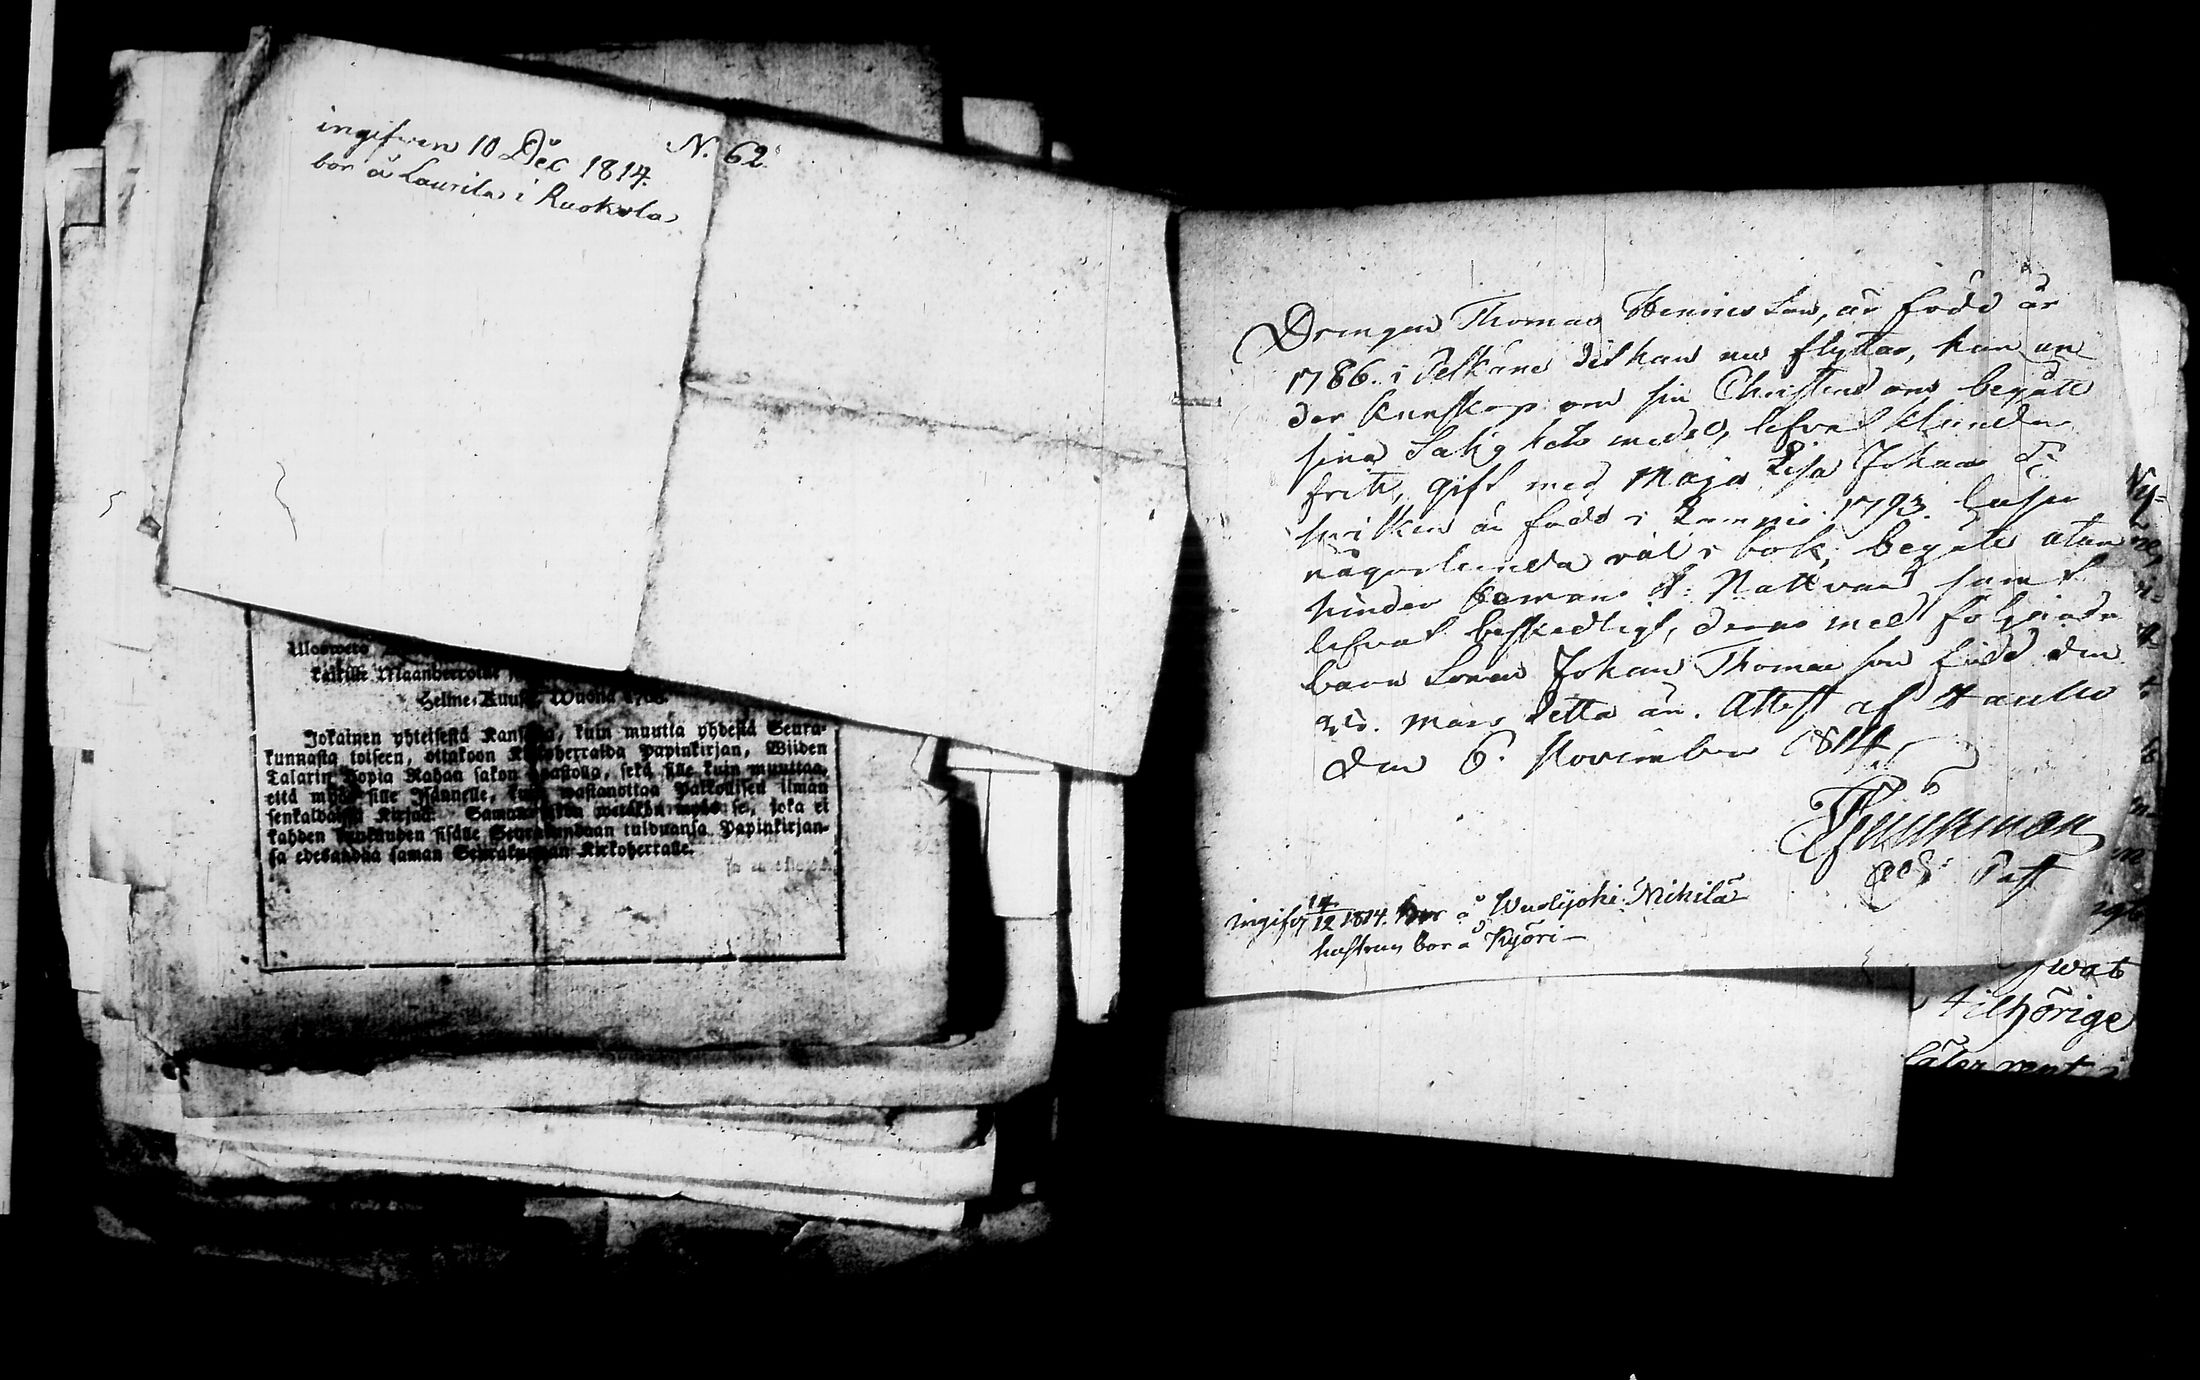 ingifven 10 Dec 1814.
bor å Laurila i Ruokola
N. 62.
Ulosweto
kaikille Maanherroille
Helme-Kuusa, Wuonna
Jokainen yhteisestä Kansasta, kuin muutta yhdestä Seura-
kunnasta toiseen, ottakoon Kirkoherralda Papinkirjan, Wiiden
Talarin Hopia Rahan sakon haastolla, sekä sille kuin muuttaa,
että myös sille Isännelle, kuin wastanottaa Palkollisen ilman
senkaldaista Kirjaa. Saman sakon wetäkön myös se, joka ei
kahden wiikkuden sisälle Seurakundaan tulduansa Papinkirjan-
sa edesanna saman Seurakunnan Kirkoherralle.
Drengen Thomas Henricsson, är född år
1786. i Pelkäne dit han nu flyttar, han an
der kunskap om sin Christendom begått
sina Salighets medel, lefvat klander
fritt, gift med Maja Lisa Johans Dr
hvilken är född i 1793. läser
någorlunda väl i bok, begått utan
hinder H: Nattvard samt
lefvat beskedligt, deras medföljande
barn Sonen Johan Thomasson född den
Mars detta år. Attest af Hauho
den 6. November 1814.
adj. Past
ingifv 14/12 1814. bor å Wuolijoki Mikilä
hustrun bor å Kyöri
Ny=
wat
tilhörige